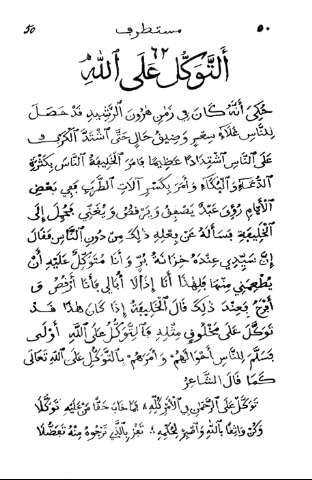 50 مستطرف ٥٠
٦٢
ٱلتَّوَكُّل عَلَى ٱللّٰه
حُكِىَ أَنَّهُ كَانَ فِى زَمَنِ هٰرُونَ ٱلرَّشِيدِ قَدْ حَصَلَ
لِلنَّاسِ غَلَاءُ سِعْرٍ وَضِيقُ حَالٍ حَتَّى ٱشْتَدَّ ٱلْكَرْبُ
عَلَى ٱلنَّاسِ ٱشْتِدَادًا عَظِيمًا فَأَمَرَ ٱلْخَلِيفَةُ ٱلنَّاسَ بِكَثْرَةِ
ٱلدُّعَاءِ وَٱلْبُكَاءِ وَأَمَرَ بِكَسْرِ آلَاتِ ٱلطَّرَبِ فَفِى بَعْضِ
ٱلْأَيَّامِ رُؤِىَ عَبْدٌ يُصَفِّقُ وَيَرْقُصُ وَيُغَنِّى فَحُمِلَ إِلَى
ٱلْخَلِيفَةِ فَسَأَلَهُ عَنْ فِعْلِهِ ذٰلِكَ مِنْ دُونِ ٱلنَّاسِ فَقَالَ
إِنَّ سَيِّدِى عِنْدَهُ خِزَانَةُ بُرٍّ وَأَنَا مُتَوَكِّلٌ عَلَيْهِ أَنْ
يُطْعِمَنِى مِنْهَا فَلِهٰذَا أَنَا إِذًا لَا أُبَالِى فَأَنَا أَرْقُصُ وَ
أَفْرَحُ فَعِنْدَ ذٰلِكَ قَالَ ٱلْخَلِيفَةُ إِذَا كَانَ هٰذَا قَدْ
تَوَكَّلَ عَلَى مَخْلُوقٍ مِثْلِهِ فَٱلتَّوَكُّلُ عَلَى ٱللّٰهِ أَوْلَى
فَسَلَّمَ لِلنَّاسِ أَحْوَالَهُمْ وَأَمَرَهُمْ بِٱلتَّوَكُّلِ عَلَى ٱللّٰهِ تَعَالَى
كَمَا قَالَ ٱلشَّاعِرُ
تَوَكَّلْ عَلَى ٱلرَّحْمٰنِ فِى ٱلْأَمْرِ كُلِّهِ ؞ فَمَا خَابَ حَقًّا مَنْ عَلَيْهِ تَوَكَّلَا
وَكُنْ وَاثِقًا بِٱللّٰهِ وَٱصْبِرْ لِحُكْمِهِ ؞ تَفُزْ بِٱلَّذِى تَرْجُوهُ مِنْهُ تَفَضُّلَا